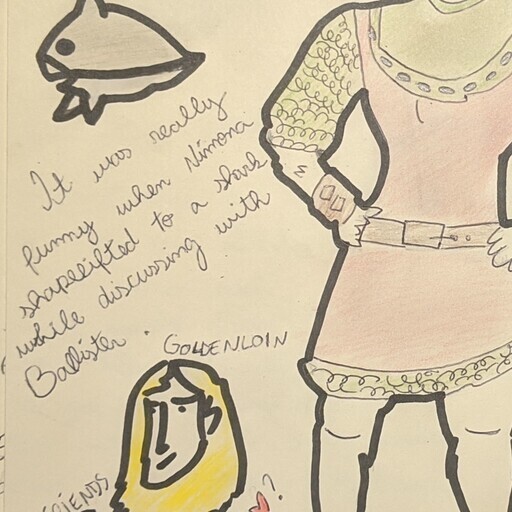 It was really
funny when Nimona
shapelifted to a shark
while discussing with
Ballister.
GOLDENLOIN
FRIENDS
?